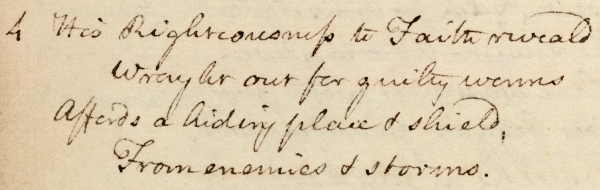 4 His Righteousness to Faith reveald
Wrought out for guilty worms
Affords a hiding place & shield,
From enemies & storms.